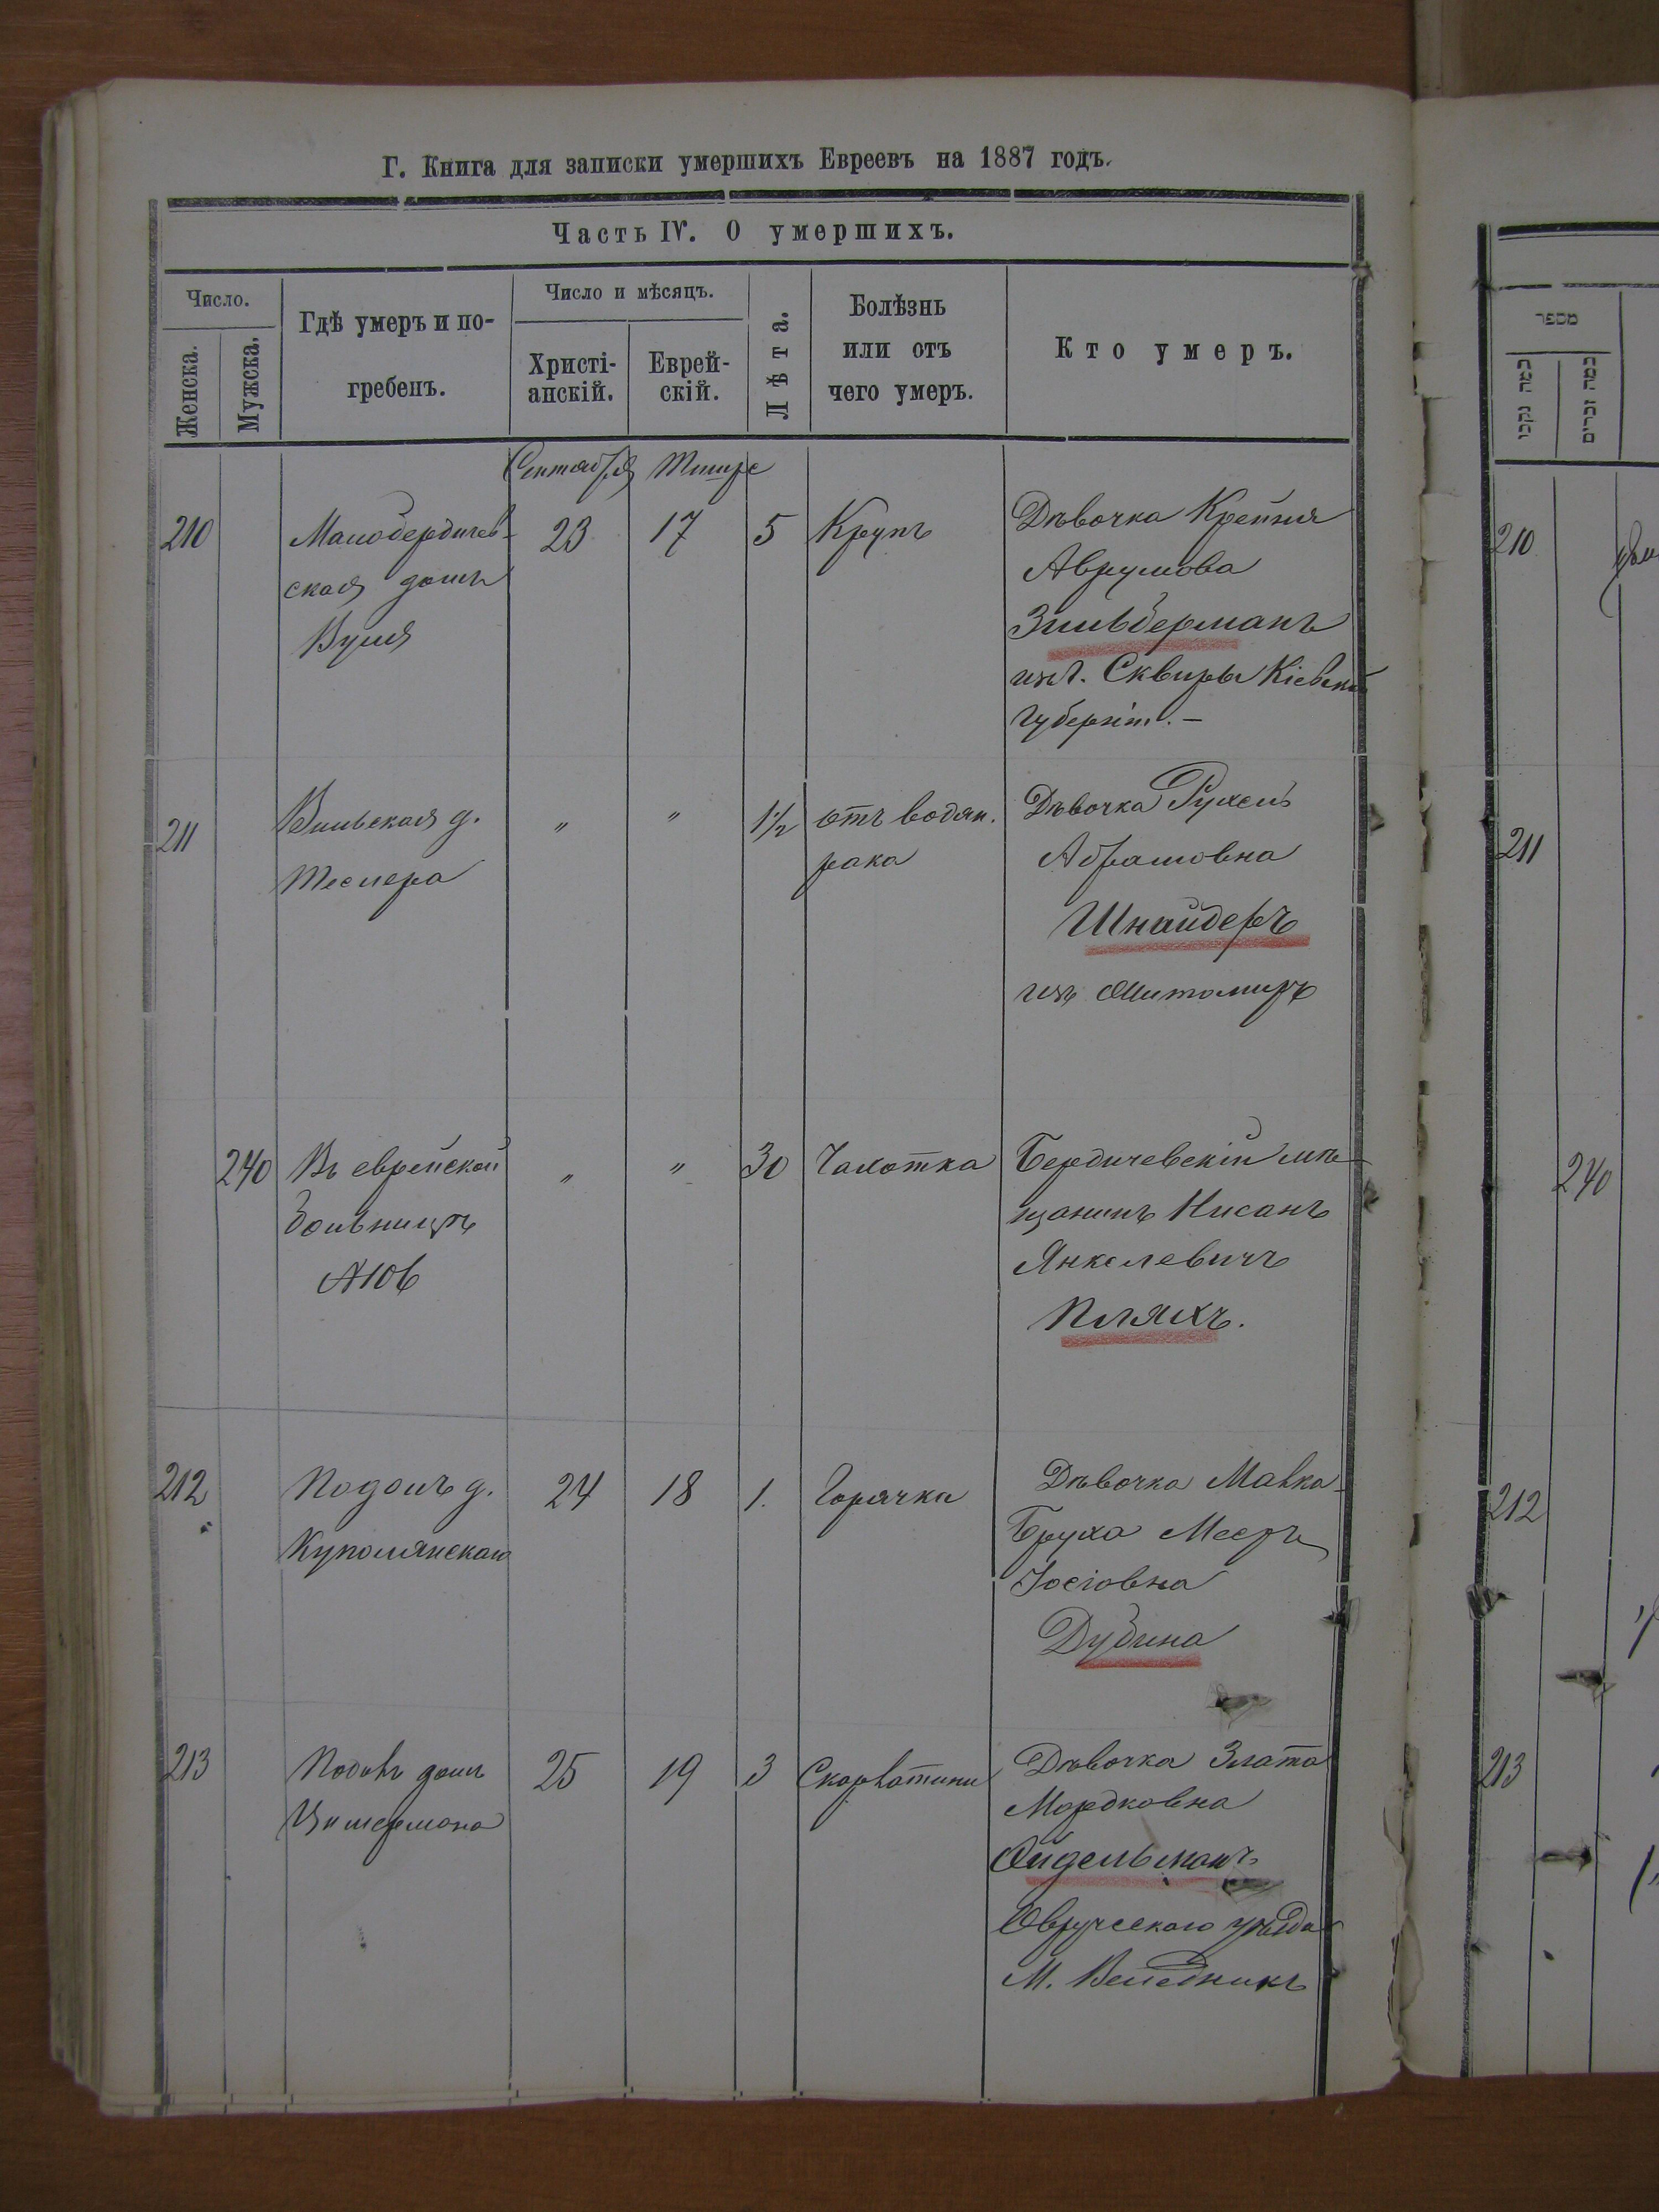 Г. Книга для записки умершихъ Евреевъ на 1887 годъ.
Часть IV. О умершихъ.
Число.
Женска.
Мужска.
Гдѣ умеръ и по-
гребенъ.
Число и мѣсяцъ.
Христі-
анскій.
Еврей-
скій.
Лѣта.
Болѣзнь
или отъ
чего умеръ.
Кто умеръ.
Сентября Тишре
210
Малобердичев-
ская домъ
Вуля
23
17
5
Крупъ
Дѣвочка Крейня
Аврумова
Зильберманъ
изъ г. Сквиры Кіевской
Губерніи. —
211
Вильская д.
Теслера
"
"
1½
отъ водян.
рака
Дѣвочка Рухель
Абрамовна
Шнайдеръ
изъ Житомиръ
240
Въ еврейской
больницѣ
"
"
30
Чахотка
Бердичевскій мѣ-
щанинъ Нисанъ
Янкелевичъ
Пляхъ.
212
Подолъ д.
Куполянскаго
24
18
1.
Горячка
Дѣвочка Малка-
Бруха Мееръ
Іосіовна
Дубина
213
Подолъ домъ
Цимермана
25
19
3
Скарлатини
Дѣвочка Злата
Мордковна
Ойдельманъ
Овручскаго уѣзда
М. Веледникъ
מספר
כמה נקבו
כמה זכרים
210
211
240
212
213